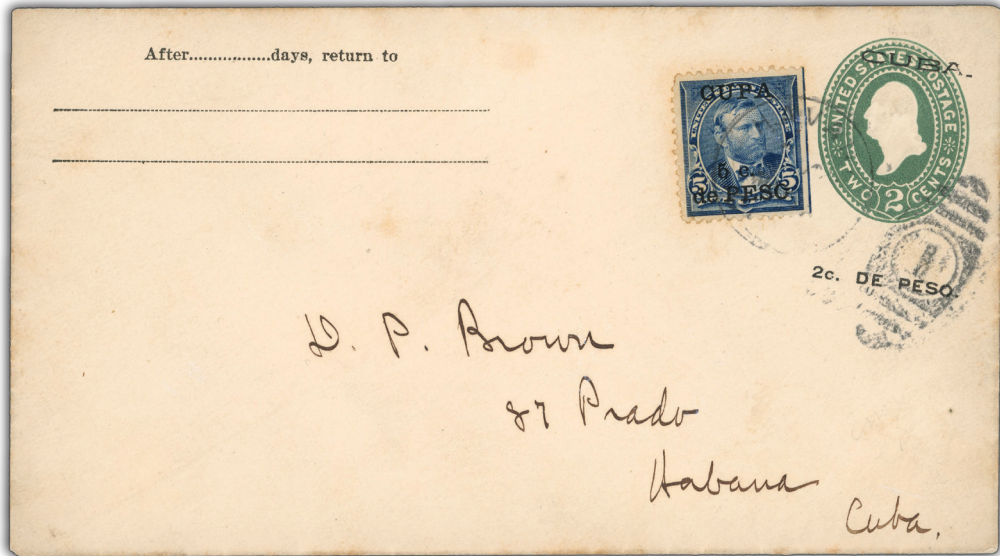 After.................days, return to
CUPA
5 c.
de PESO
5 5
CUBA.
UNITED STATES POSTAGE
TWO CENTS
2
2c. DE PESO.
1
D. P. Brown
87 Prado
Habana
Cuba.